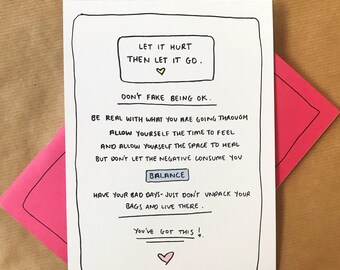 LET IT HURT
THEN LET IT GO.
DON'T FAKE BEING OK.
BE REAL WITH WHAT YOU ARE GOING THROUGH
ALLOW YOURSELF THE TIME TO FEEL
AND ALLOW YOURSELF THE SPACE TO HEAL
BUT DON'T LET THE NEGATIVE CONSUME YOU
BALANCE
HAVE YOUR BAD DAYS - JUST DON'T UNPACK YOUR
BAGS AND LIVE THERE.
YOU'VE GOT THIS!